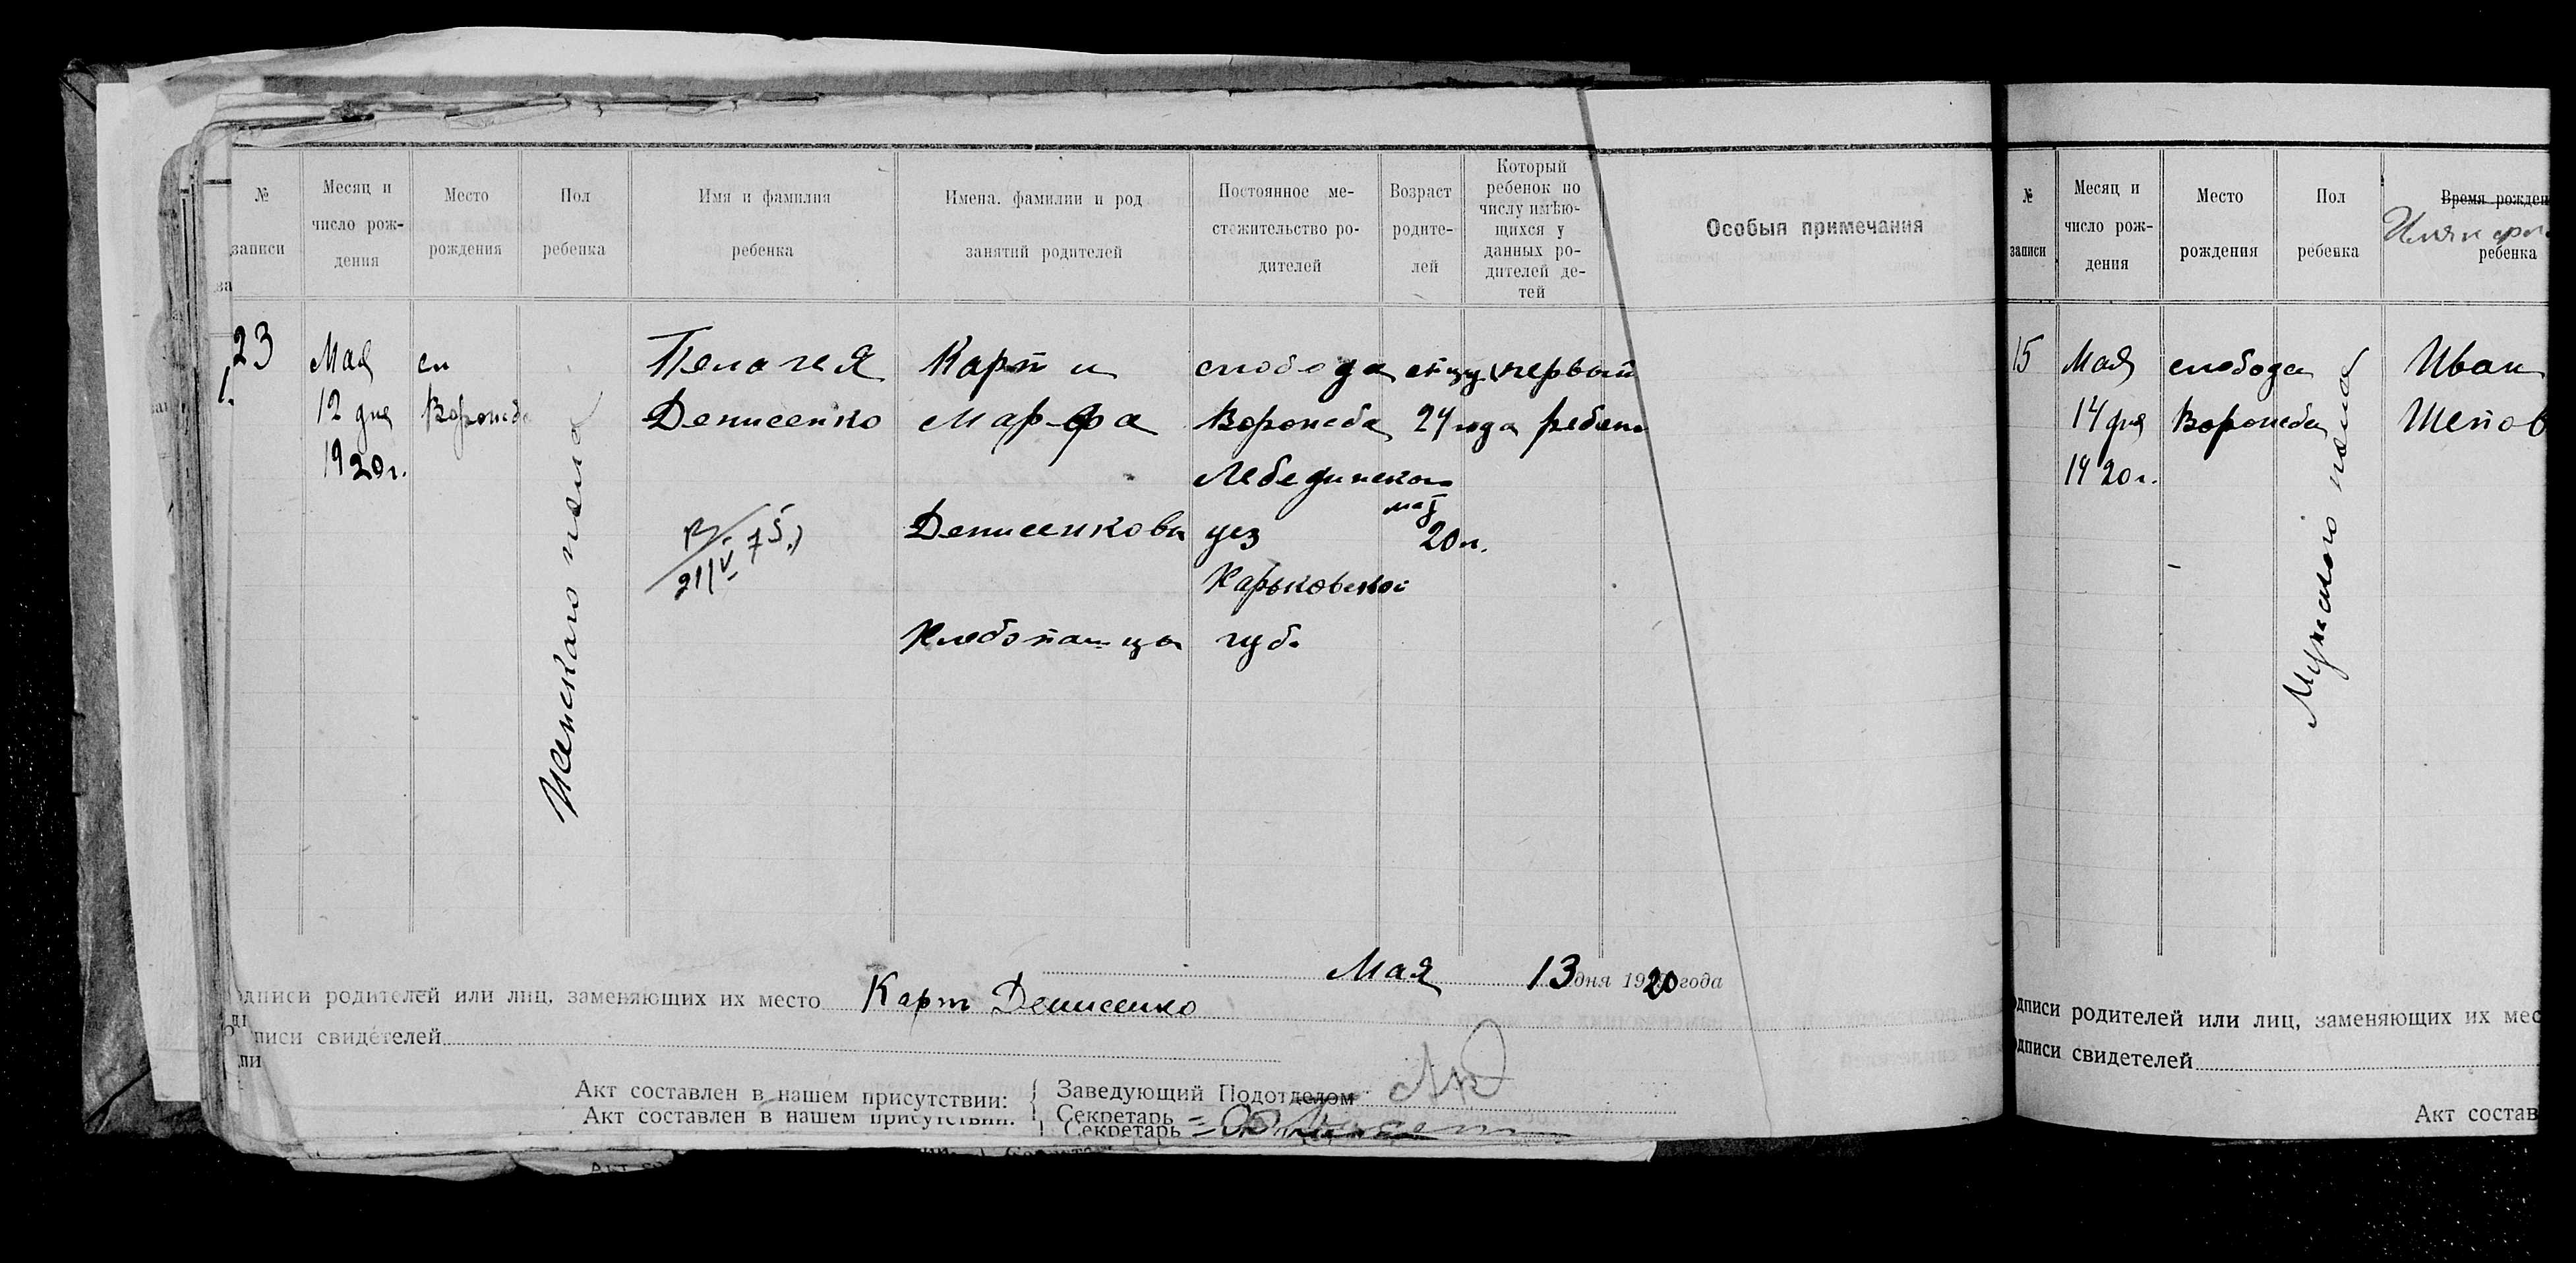 № записи
Месяц и число рождения
Место рождения
Пол ребенка
Имя и фамилия ребенка
Имена, фамилии и род занятий родителей
Постоянное местожительство родителей
Возраст родителей
Который ребенок по числу имѣющихся у данных родителей детей
Особыя примечания
23
Мая
12 дня
1920 г.
сл
Воронеба
Женскаго пола
Пелагея
Денисенко
21/V 75
Карп и
Марфа
Денисенковы
Хлебопашцы
слобода
Воронеба
Лебединского
уез
Харьковской
губ.
отцу
24 года
мат
20 л.
первый
ребено
Мая 13 дня 1920 года
одписи родителей или лиц, заменяющих их место Карп Денисенко
писи свидетелей
Акт составлен в нашем присутствии: Заведующий Подотделом
Акт составлен в нашем присутствии: Секретарь
Секретарь
№ записи
Месяц и число рождения
Место рождения
Пол ребенка
Время рожден
ребенка
15
Мая
14 дня
1920 г.
слобода
Воронеба
Мужского пола
Иван
Шепов
одписи родителей или лиц, заменяющих их мес
одписи свидетелей
Акт состав